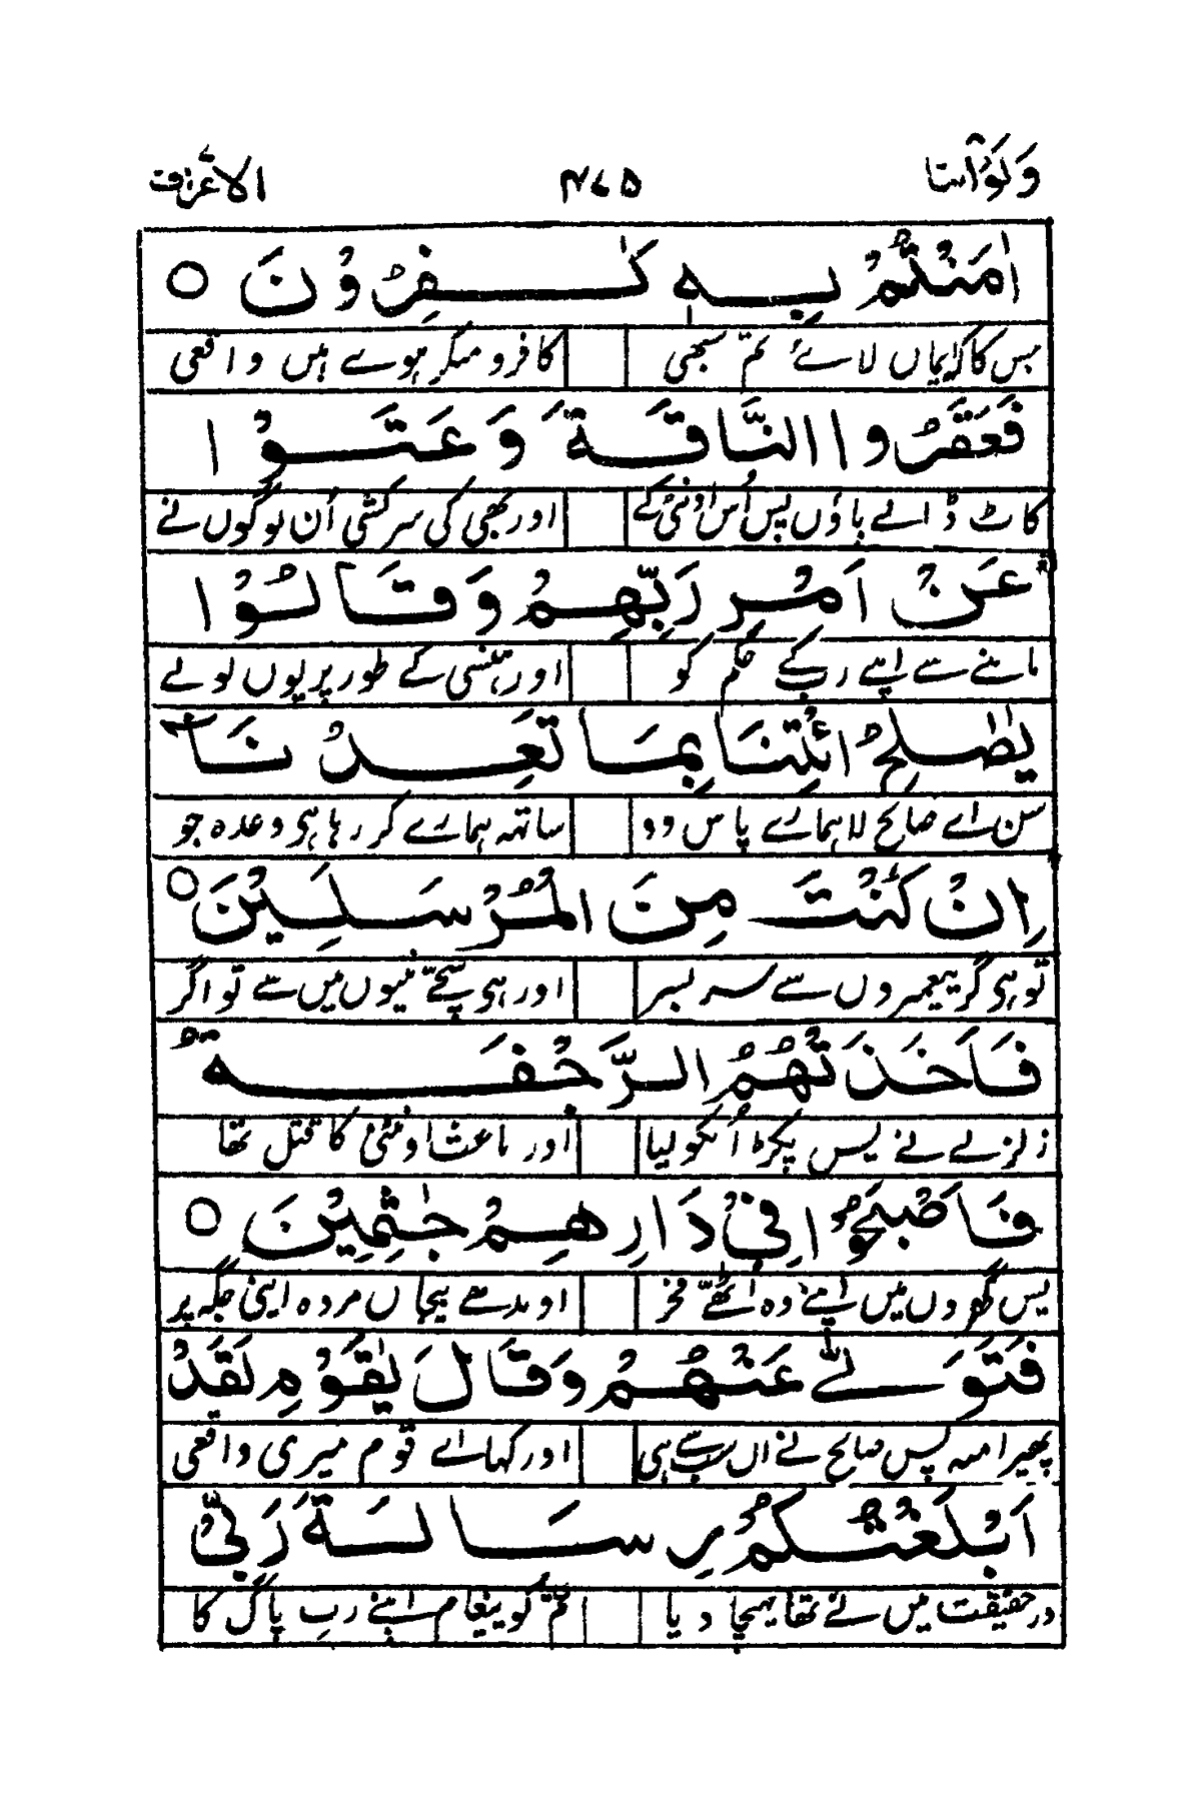 وَلَوْاَنَّنَا ۴۷۵ الاعراف
اٰمَنْتُمْ بِهٖ كٰفِرُوْنَ ○
جس کا کہ ایماں لائے تم سبھی کافر و منکر ہوے ہیں واقعی
فَعَقَرُوا النَّاقَةَ وَعَتَوْا
کاٹ ڈالے پاؤں پس اُس اونٹنی کے اور بھی کی سرکشی اُن لوگوں نے
عَنْ اَمْرِ رَبِّهِمْ وَقَالُوْا
ماننے سے اپنے رب کے حکم کو اور ہنسی کے طور پر یوں بولے
يٰصٰلِحُ ائْتِنَا بِمَا تَعِدُنَا
سن اے صالح لا ہمارے پاس وو ساتھ ہمارے کر رہا ہی وعدہ جو
اِنْ كُنْتَ مِنَ الْمُرْسَلِيْنَ ○
تو ہی گر پیغمبروں سے سر بسر اور ہی سچّے نبیوں میں سے تو اگر
فَاَخَذَتْهُمُ الرَّجْفَةُ
زلزلے نے پس پکڑ اُنکو لیا اور باعث اونٹنی کا قتل تھا
فَاَصْبَحُوْا فِيْ دَارِهِمْ جٰثِمِيْنَ ○
پس گھروں میں اپنے وہ اٹھّے فجر اوندھے بیجاں مردہ اپنی جگہ پر
فَتَوَلّٰے عَنْهُمْ وَقَالَ يٰقَوْمِ لَقَدْ
پھیرا منہ پس صالح نے اں سب سے ہی اور کہا اے قوم میری واقعی
اَبْلَغْتُكُمْ رِسَالَةَ رَبِّيْ
در حقیقت میں نے تھا پہنچا دیا تم کو پیغام اپنے رب پاک کا